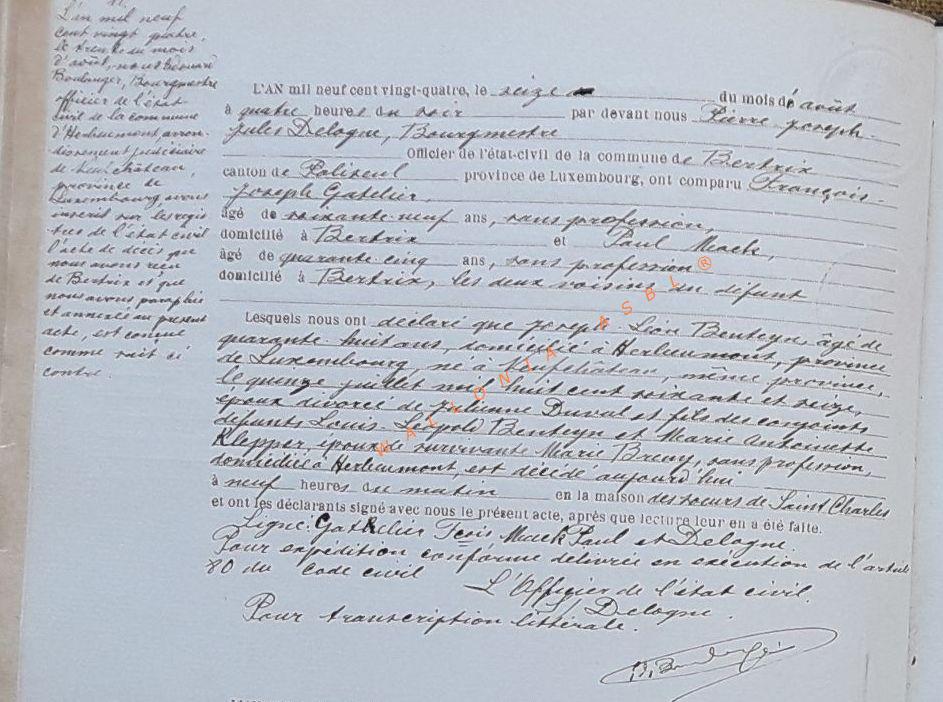 L'an mil neuf
cent vingt quatre,
le trente du mois
d'août, nous Edouard
Boulanger, Bourgmestre
officier de l'état
civil de la commune
d'Herbeumont arron-
dissement judiciaire
de Neufchâteau,
province de
Luxembourg, avons
inscrit sur les regis
tres de l'état civil
l'acte de décès que
nous avons reçu
de Bertrix et que
nous avons paraphé
et annexé au présent
acte, est conçu
comme suit ci
contre.
L'AN mil neuf cent vingt-quatre, le seize du mois d'août
à quatre heures du soir par devant nous Pierre-Joseph-
Jules Delogne, Bourgmestre
Officier de l'état-civil de la commune de Bertrix
canton de Paliseul province de Luxembourg, ont comparu François-
Joseph Gatelier,
âgé de soixante-neuf ans, sans profession,
domicilié à Bertrix et Paul Mack,
âgé de quarante-cinq ans, sans profession
domicilié à Bertrix, les deux voisins du défunt
Lesquels nous ont déclaré que Joseph-Léon Benteyn, âgé de
quarante-huit ans, domicilié à Herbeumont, province
de Luxembourg, né à Neufchâteau, même province,
le quinze juillet mil huit cent soixante et seize,
époux divorcé de Julienne Duval et fils des conjoints
défunts Louis-Léopold Benteyn et Marie Antoinette
Klepper, époux de survivante Marie Breny, sans profession,
domiciliée à Herbeumont, est décédé aujourd'hui
à neuf heures du matin en la maison des soeurs de Saint Charles
et ont les déclarants signé avec nous le présent acte, après que lecture leur en a été faite.
Signé: Gatelier Fcois Mack Paul et Delogne.
Pour expédition conforme délivrée en exécution de l'article
80 du Code civil
L'Officier de l'état civil.
S/ Delogne.
Pour transcription littérale.
WALLONIA ASBL ®